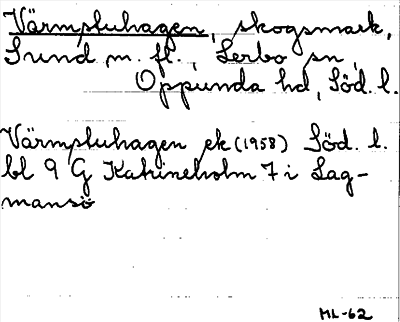 Värmpluhagen, skogsmark,
Sund m. fl., Lerbo sn,
Oppunda hd, Söd. l.
Värmpluhagen ek (1958) Söd. l.
bl 9 G Katrineholm 7 i Lag-
mansö
ML-62